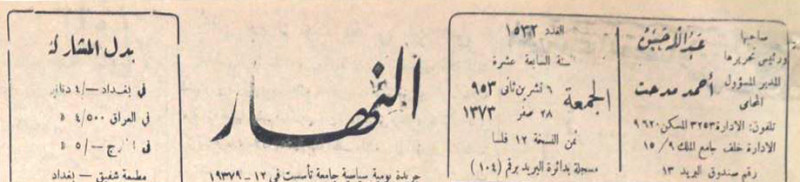 صاحبها
ورئيس تحريرها
عبدالله حسن
المدير المسؤول
المحامي
أحمد مدحت
تلفون: الادارة ٣٢٥٣ المسكن ٩٦٢٠
الادارة خلف جامع الملك ٩/ ١٥
رقم صندوق البريد ١٣
العدد ١٥٣٢
السنة السابعة عشرة
الجمعة
٦ تشرين ثاني ٩٥٣
٢٨ صفر ١٣٧٣
ثمن النسخة ١٢ فلسا
مسجلة بدائرة البريد برقم (١٠٤)
النهار
جريدة يومية سياسية جامعة تأسست في ١٢ -
بدل المشاركة
في بغداد -/٤ دنانير
في العراق ٤/٥٠٠ د
في الخارج -/٥ د
مطبعة شفيق - بغداد